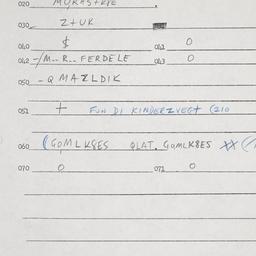 020 MURASTRIE
030 Z+UK
060 $ 061 0
062 -/M.. R.. FERDELE 063 0
050 -Q MAZLDIK
051 + FUN DI KINDERZVEGT (210
060 (GOMLK8ES QLAT. GOMLK8ES
070 0 071 0